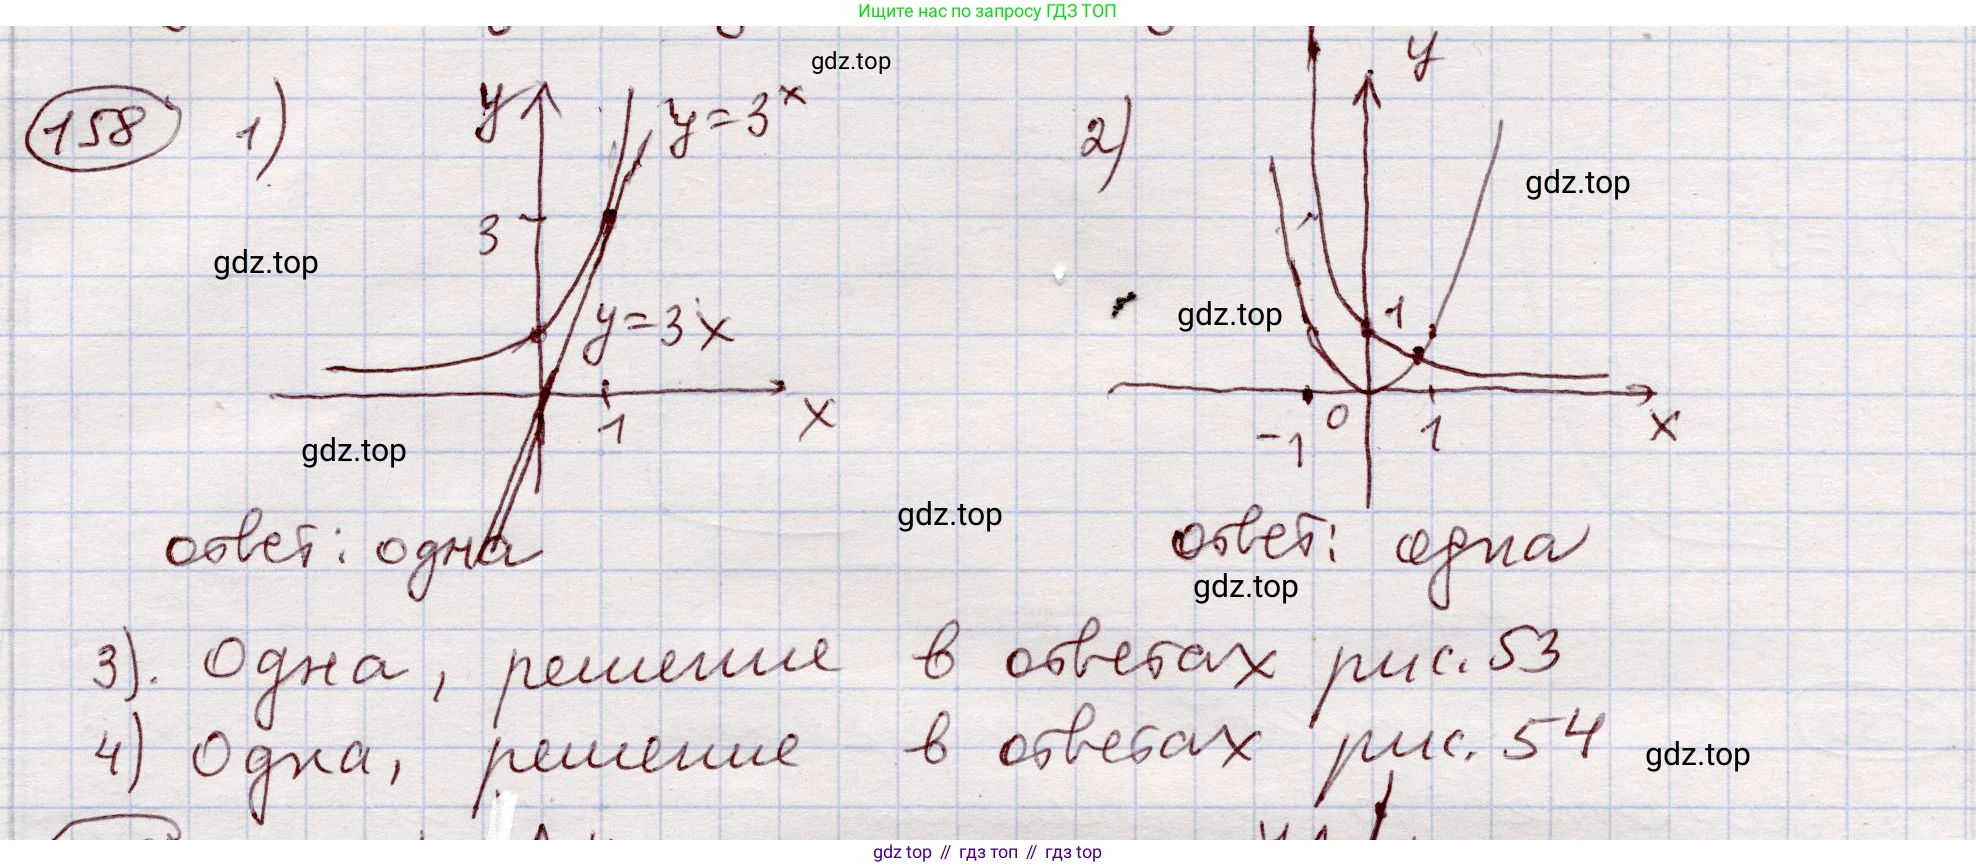 Ищите нас по запросу ГДЗ ТОП
gdz.top
158 1) y y=3ˣ
2) y
gdz.top
3
gdz.top
y=3x
gdz.top
1
x
1
-1 0 1 x
gdz.top
gdz.top
ответ: одна
ответ: одна
gdz.top
3). Одна, решение в ответах рис. 53
4) Одна, решение в ответах рис. 54
gdz.top
gdz top // гдз топ // гдз top